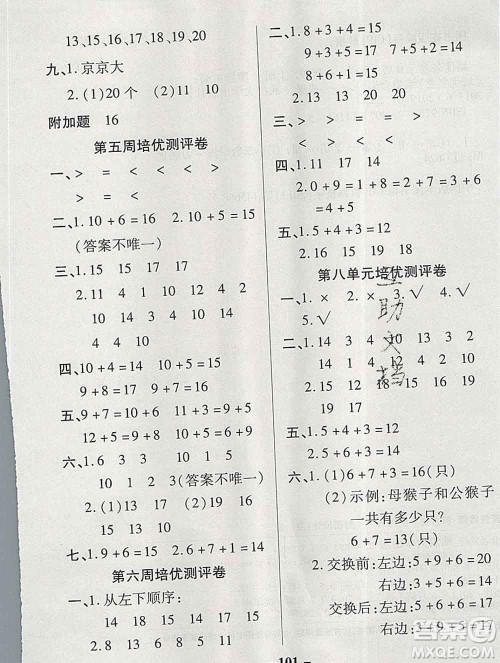 13、15、16、17、18、19、20
九、1. 京京大
2. (1)20 个 (2)11 10
附加题 16
第五周培优测评卷
一、> = < < < >
> = < > < >
二、1. 10+6=16 2. 10+5=15
(答案不唯一)
三、1. 15 15 17
2. 11 4 9 10 14
10 14 4 10 10
四、10+4=14 8+7=15
9+8=17
五、9+3=12 11+3=9+5
12+5=9+8 10+5=15
六、1. 3 8 6
10 1 2 (答案不唯一)
2. (1)19 18 17 16 15
13 12 11 10
(2)10 2 0
七、1. 9+2=11
第六周培优测评卷
一、1. 从左下顺序:
17 17 15 15
2. 8 13 9 4 5
二、1. 8+3+4=15
9+3+5=17
8+6+1=15
2. 13 13 20 15
三、> < < = > >
> < = > < <
四、1. 13 15 12 17
2. 0+9=9 4+5=9
3+6=9
五、1. 5+4+3=12
2. 16 15 19 18
第八单元培优测评卷
一、1. × 2. × 3. √ 4. √
5. √
二、1. 14 3 4 10 13 3
14 1 4 12 2 4
2. 15 15 14 18 18
19 17
五、1. 5+4+3=12
六、1. (1)6+7=13(只)
(2)示例:母猴子和公猴子
一共有多少只?
6+7=13(只)
2. 交换前:左边:5+6=11
右边:7+9=16
交换后:左边:5+6+6=17
101
作业帮
MXQE.COM